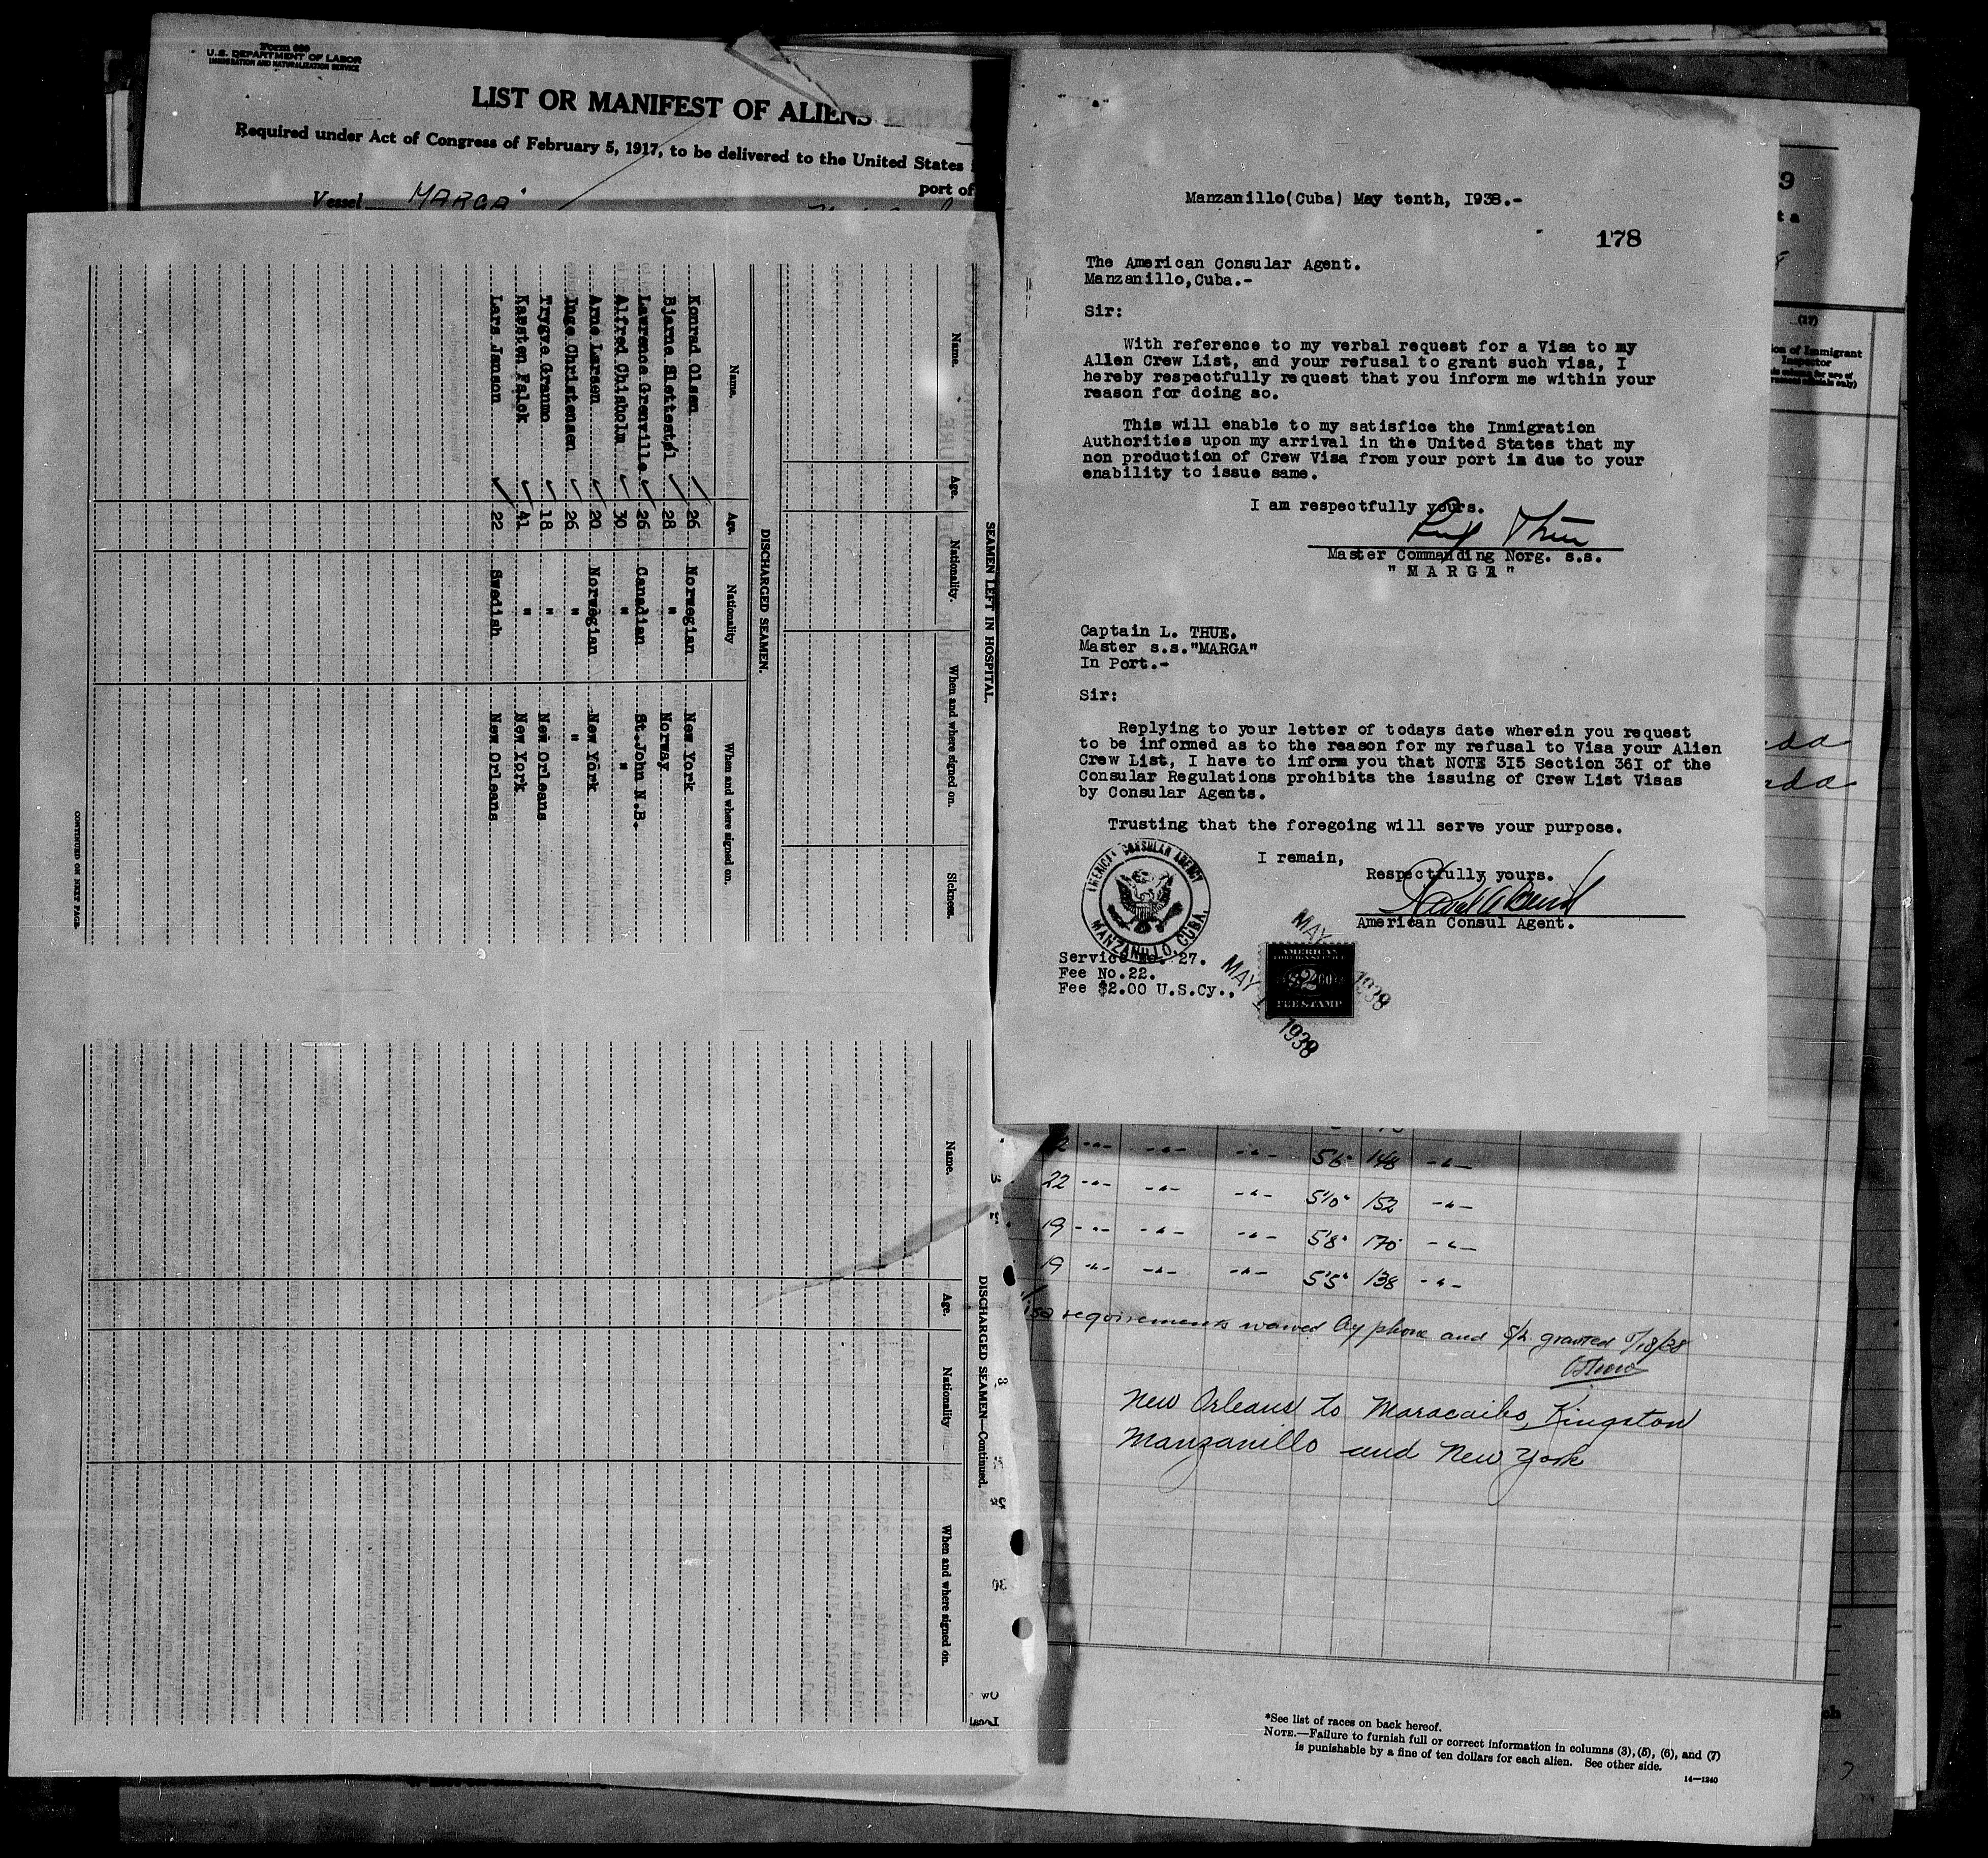 Form 680
U.S. DEPARTMENT OF LABOR
IMMIGRATION AND NATURALIZATION SERVICE
LIST OR MANIFEST OF ALIENS
Required under Act of Congress of February 5, 1917, to be delivered to the United States
port of
Vessel MARGA
SEAMEN LEFT IN HOSPITAL.
Name. Age. Nationality. When and where signed on. Sickness.
DISCHARGED SEAMEN.
Name. Age. Nationality When and where signed on.
Konrad Olsen 26 Norwegian New York
Bjarne Slettestøl 28 " Norway
Lawrence Grenville 26 Canadian St.John N.B.
Alfred Chisholm 30 " "
Arne Larsen 20 Norwegian New York
Inge Christensen 26 " "
Trygve Granmo 18 " New Orleans
Karsten Falck 41 " New York
Lars Janson 22 Swedish New Orleans
CONTINUED ON NEXT PAGE.
DISCHARGED SEAMEN—Continued.
Name. Age. Nationality When and where signed on.
Manzanillo(Cuba) May tenth, I938.-
178
The American Consular Agent.
Manzanillo,Cuba.-
Sir:
With reference to my verbal request for a Visa to my
Alien Crew List, and your refusal to grant such visa, I
hereby respectfully request that you inform me within your
reason for doing so.
This will enable to my satisfice the Inmigration
Authorities upon my arrival in the United States that my
non production of Crew Visa from your port is due to your
enability to issue same.
I am respectfully yours.
Master Commanding Norg. s.s.
" M A R G A "
Captain L. THUE.
Master s.s."MARGA"
In Port.-
Sir:
Replying to your letter of todays date wherein you request
to be informed as to the reason for my refusal to Visa your Alien
Crew List, I have to inform you that NOTE 3I5 Section 36I of the
Consular Regulations prohibits the issuing of Crew List Visas
by Consular Agents.
Trusting that the foregoing will serve your purpose.
I remain,
Respectfully yours.
American Consul Agent.
AMERICAN CONSULAR AGENCY
MANZANILLO, CUBA.
Service No. 27.
Fee No.22.
Fee $2.00 U.S.Cy.,
AMERICAN
FOREIGN SERVICE
$2.00
FEE STAMP
MAY 1938
MAY 1938
9
t a
(17)
Immigrant
Inspector
2 -"- -"- -"- 5'6" 148 -"-
22 -"- -"- -"- 5'10" 152 -"-
19 -"- -"- -"- 5'8" 170 -"-
19 -"- -"- -"- 5'5" 138 -"-
requirements waived by phone and S/L granted 5/18/38
New Orleans to Maracaibo, Kingston
Manzanillo and New York
*See list of races on back hereof.
NOTE.—Failure to furnish full or correct information in columns (3), (5), (6), and (7)
is punishable by a fine of ten dollars for each alien. See other side.
14—1240